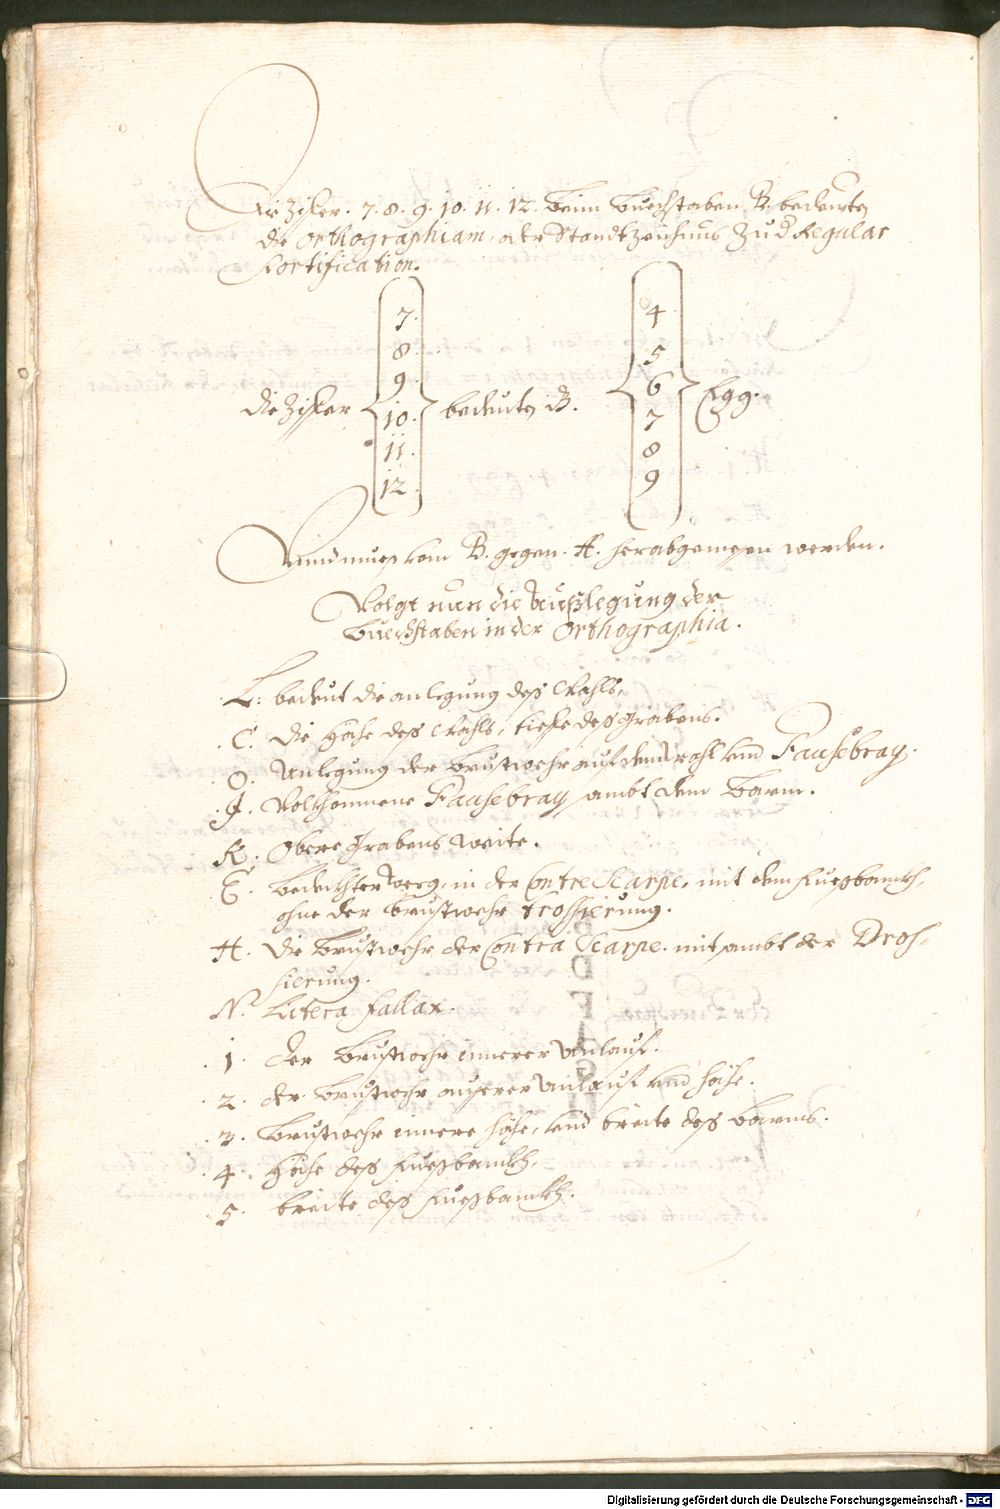 Die Zifer. 7. 8. 9. 10. 11. 12. beim buechstaben B. bedeuten
die Orthographiam, oder Standtzeichnus Zu d Regular
Fortification.
die Zifer 7. 8. 9 10. 11. 12. bedeuten B. 4 5 6 7 8 9 Egg.
Vnnd mues vom B. gegen. A. herabgemessen werden.
Volgt nun die Außlegung der
buechstaben in der Orthographia.
L: bedeut die anlegung deß Wahls,
C. die Höche deß Wahls, tieffe deß grabens.
O. Anlegung der brustwehr auf dem Wahl vnd Fausebray.
J. Volkhommene Fausebray sambt dem barm.
K. Obere grabens weite.
E. bedeckhter weeg, in der Contre Scarpe, mit dem fuesbanckh,
ohne der brustwehr trossierung.
H. die brustwehr der Contra Scarpe. mit sambt der Dros-
sierung.
N. Litera fallax.
1 der brustwehr innerer Anlauf.
2. der brustwehr ausserer Anlauf vnd höche.
3. brustwehr innere höche, vnd breite deß barms.
4. Höche deß fuesbanckh.
5. breite deß fuesbanckh.
Digitalisierung gefördert durch die Deutsche Forschungsgemeinschaft - DFG